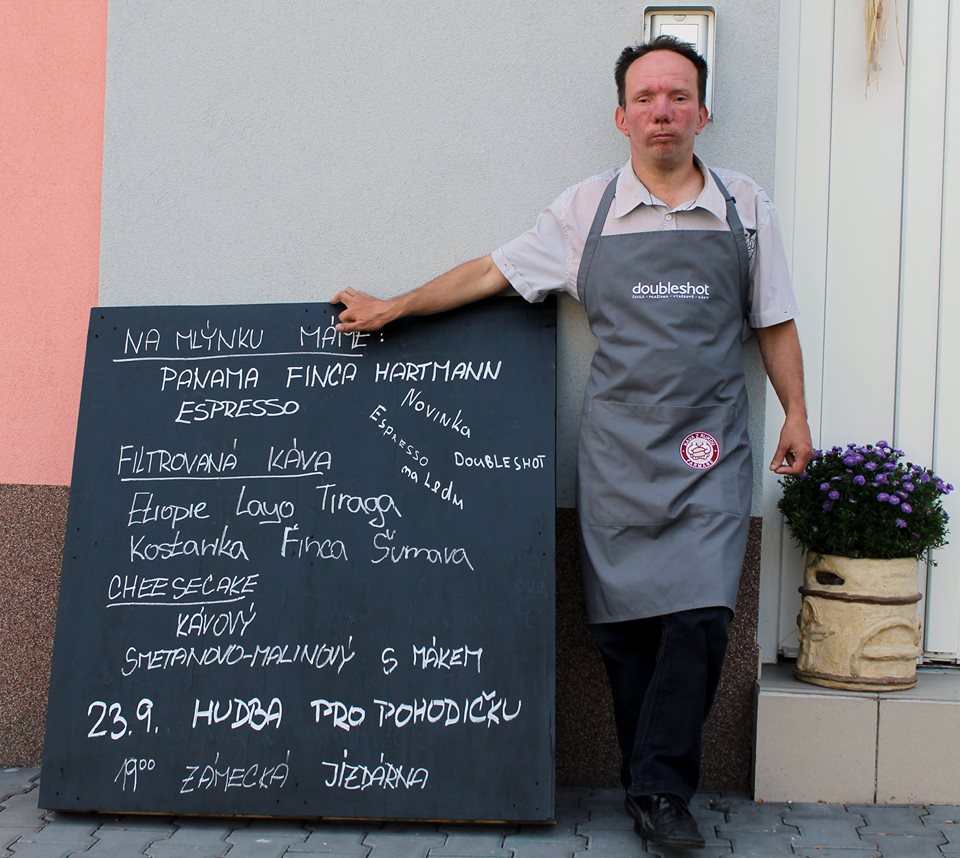 NA MLÝNKU MÁME:
PANAMA FINCA HARTMANN
ESPRESSO
NOVINKA
ESPRESSO
na ledu
DOUBLESHOT
FILTROVANÁ KÁVA
Etiopie Layo Tiraga
Kostarika Finca Šumava
CHEESECAKE
KÁVOVÝ
SMETANOVO-MALINOVÝ S MÁKEM
23.9. HUDBA PRO POHODIČKU
1900 ZÁMECKÁ JÍZDÁRNA
doubleshot
ČESKÁ • PRAŽÍRNA • VÝBĚROVÉ • KÁVY